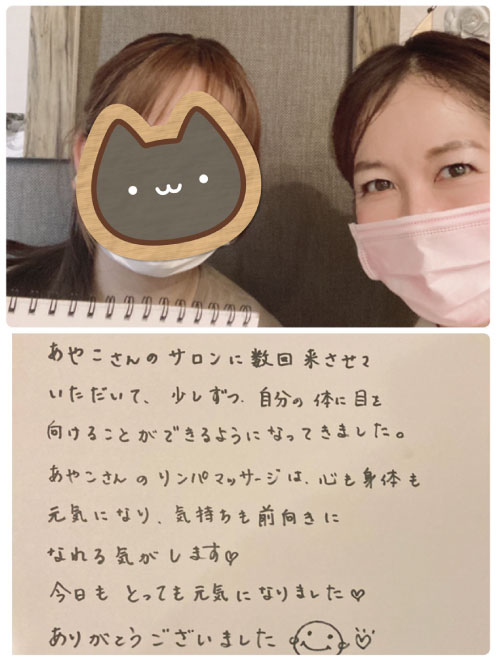 あやこさんのサロンに数回来させて
いただいて、少しずつ、自分の体に目を
向けることができるようになってきました。
あやこさんのリンパマッサージは、心も身体も
元気になり、気持ちも前向きに
なれる気がします♡
今日もとっても元気になりました♡
ありがとうございました